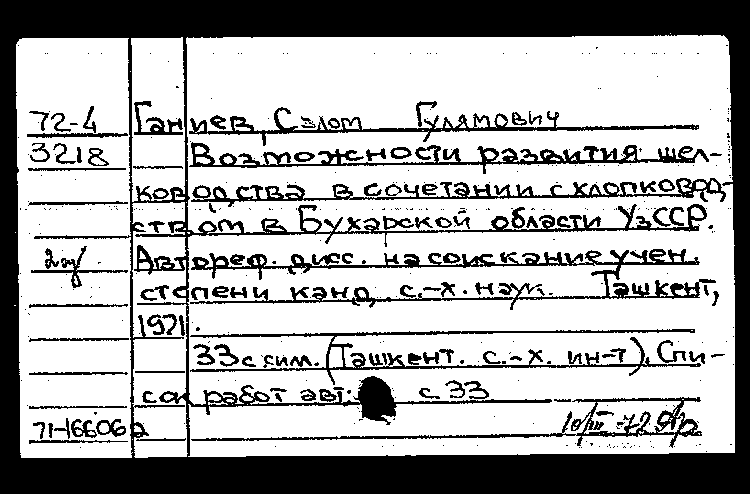 72-4 Ганиев, Салом Гулямович
3218 Возможности развития шел-
ководства в сочетании с хлопковод-
ством в Бухарской области УзССР.
2 эк Автореф. дисс. на соискание учен.
степени канд. с.-х. наук. Ташкент,
1971.
33 с. (Ташкент. с.-х. ин-т). Спи-
сок работ авт.: с. 33
71-16606а 10/III-72